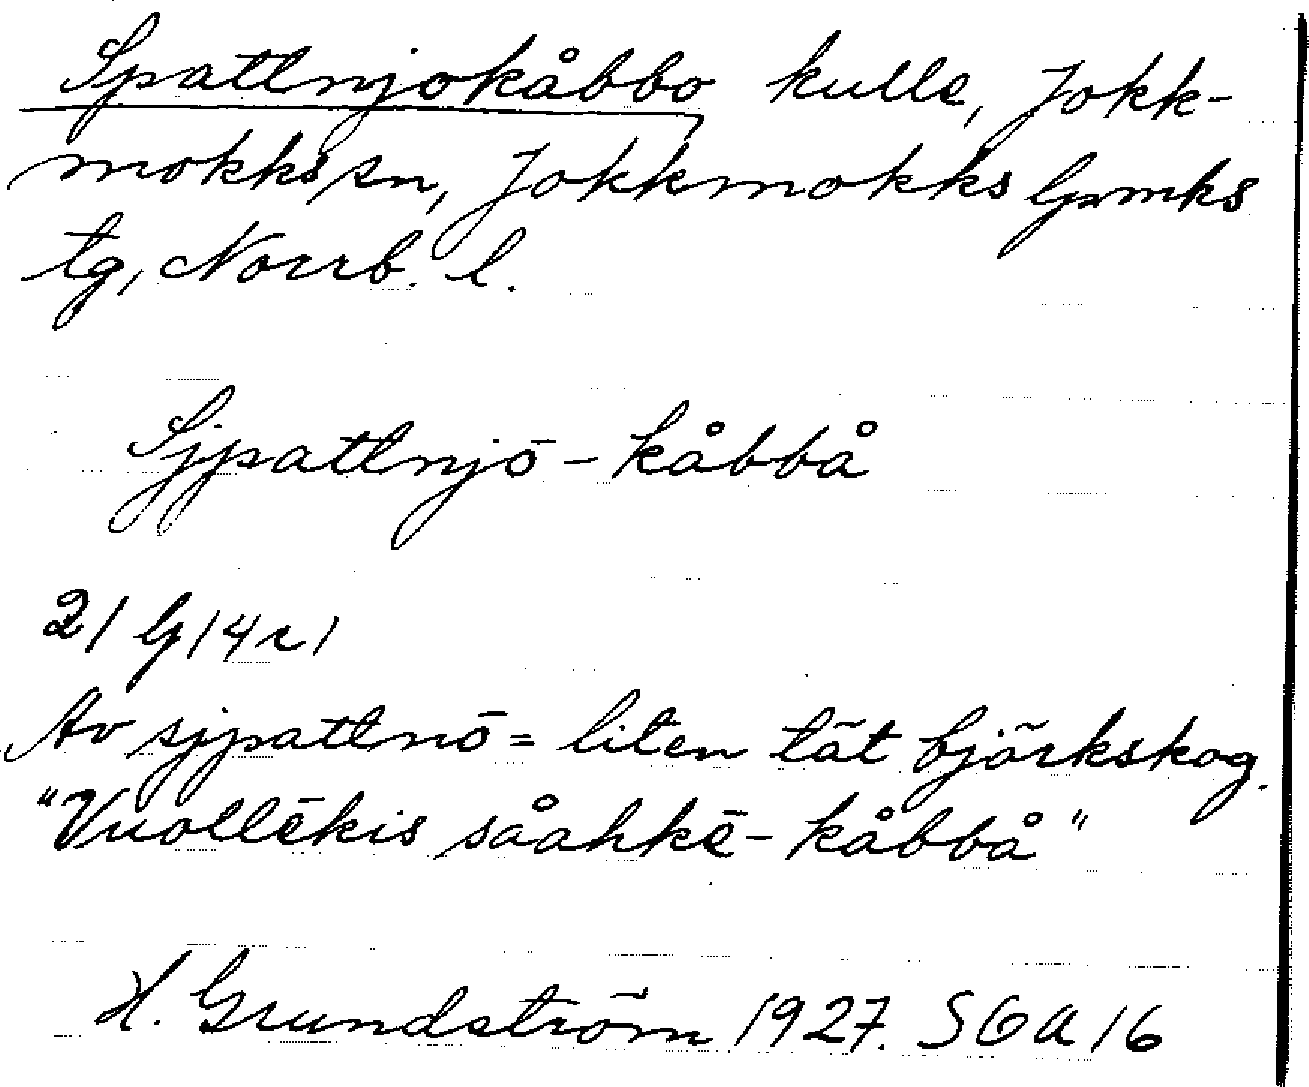 Spattnjokåbbo kulle, Jokk-
mokks sn, Jokkmokks lpmks
tg, Norrb. l.
Sjpattnjō - kåbbå
2/ G/4c/
Av sjpattnō = liten tät björkskog.
"Vuollēkis såahkē - kåbbå"
H. Grundström 1927. SOA 16